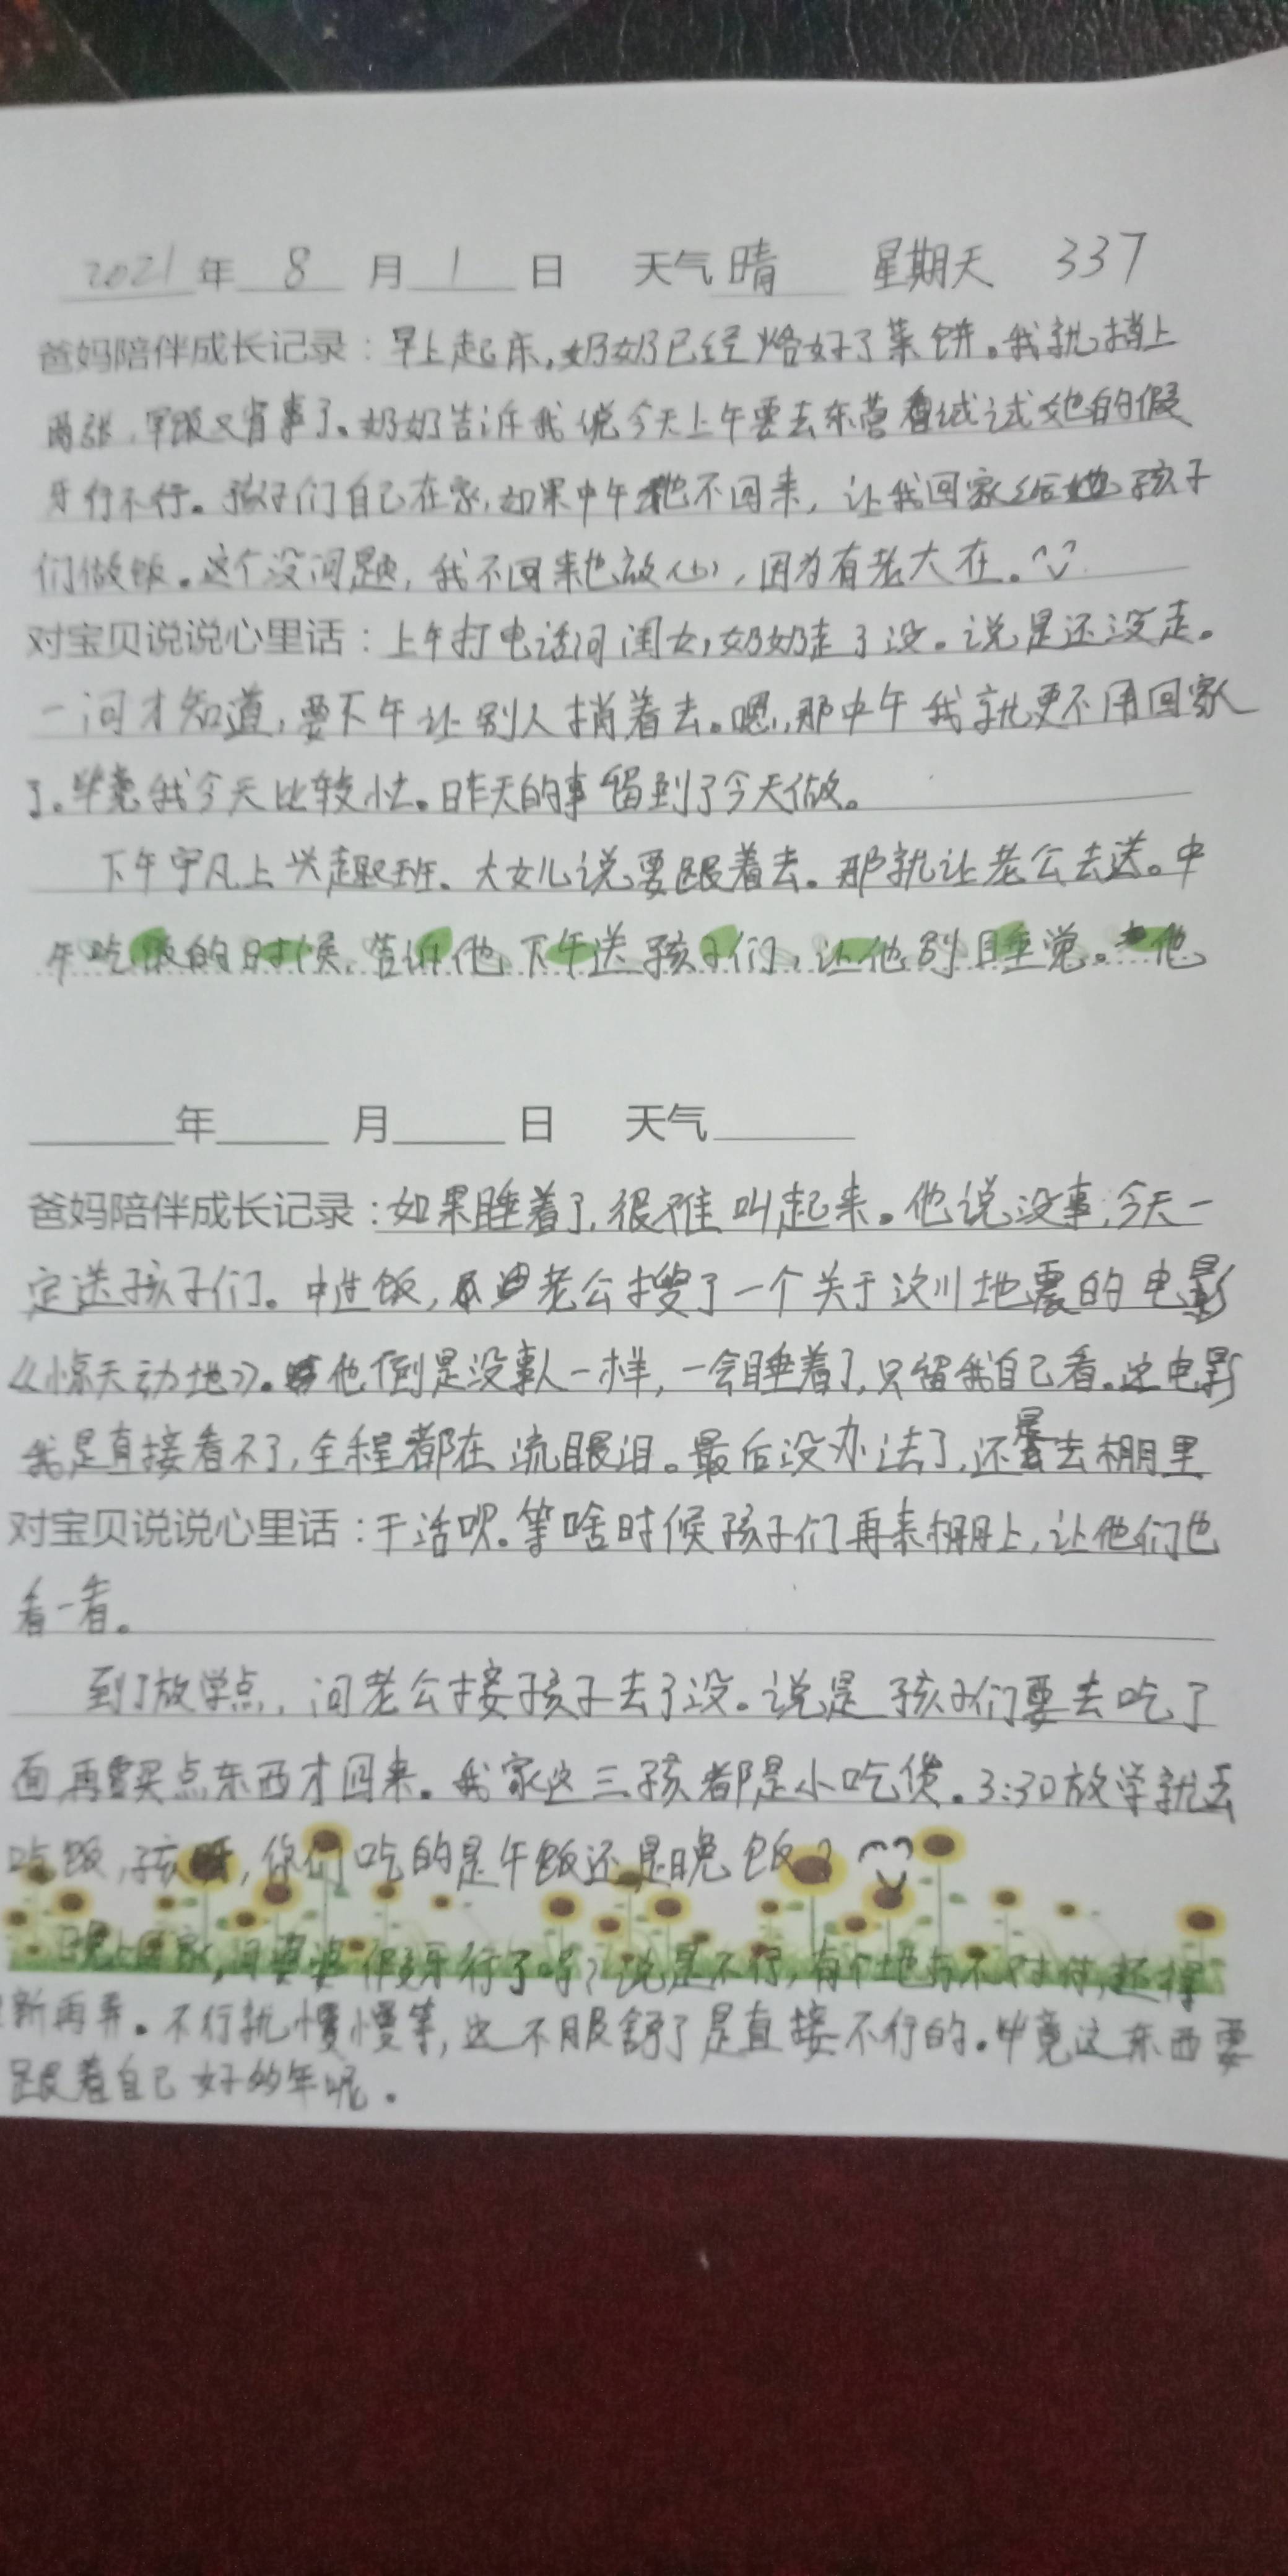 2021年 8 月 1 日 天气晴 星期天 337
爸妈陪伴成长记录：早上起床，奶奶已经烙好了菜饼。我就捎上
两张，早饭又省事了。奶奶告诉我说今天上午要去东营试试她的假
牙行不行。孩子们自己在家，如果中午她不回来，让我回家给孩子
们做饭。这个没问题，我不回来也放心，因为有老大在。
对宝贝说说心里话：上午打电话问闺女，奶奶走了没。说是还没走。
一问才知道，要下午让别人捎着去。嗯，那中午我就更不用回家
了。毕竟我今天比较忙。昨天的事留到了今天做。
下午宇凡上兴趣班。大女儿说要跟着去。那就让老公去送。中
午吃饭的时候，告诉他下午送孩子们，让他别睡觉。他
年 月 日 天气
爸妈陪伴成长记录：如果睡着了，很难叫起来。他说没事，今天一
定送孩子们。吃饭，老公搜了一个关于汶川地震的电影
《惊天动地》。他倒是没事人一样，一会睡着了，只留我自己看。这电影
我是直接看不了，全程都在流眼泪。最后没办法了，还是去棚里
对宝贝说说心里话：干活吧。等啥时候孩子们再来棚上，让他们也
看一看。
到了放学点，问老公接孩子去了没。说是孩子们要去吃了
面再买点东西才回来。我家这三孩都是小吃货。3:30放学就去
吃饭，孩呀，你们吃的是午饭还是晚饭？
晚上回家，问婆婆假牙行了吗？说是不行，有个地方不对付，还得
新再弄。不行就慢慢等，这不服舒了是直接不行的。毕竟这东西要
跟着自己好的年呢。